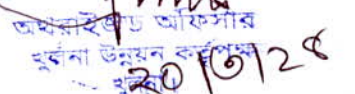 অথরাইজড অফিসার
খুলনা উন্নয়ন কর্তৃপক্ষ
খুলনা।